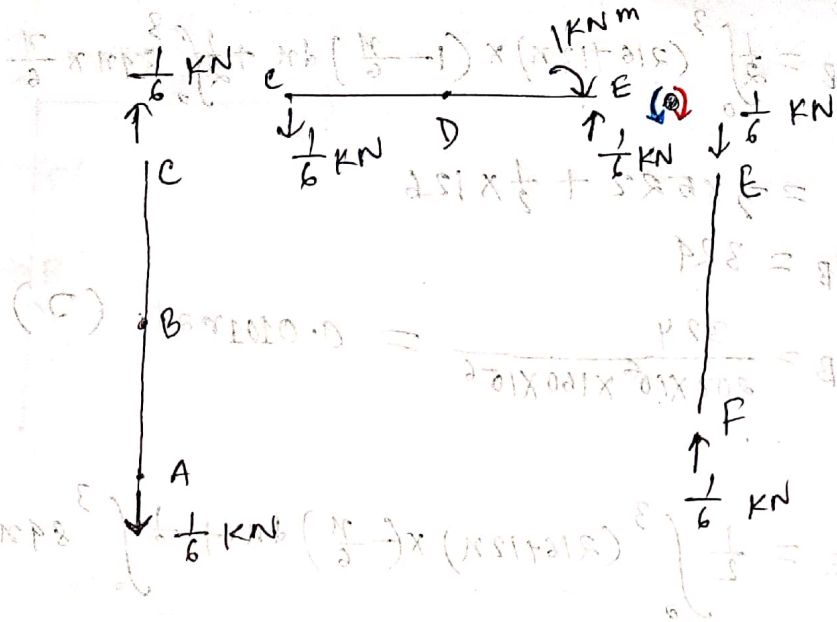 1 KN m
1/6 KN
C
E
D
1/6 KN
1/6 KN
1/6 KN
C
E
B
F
A
1/6 KN
1/6 KN